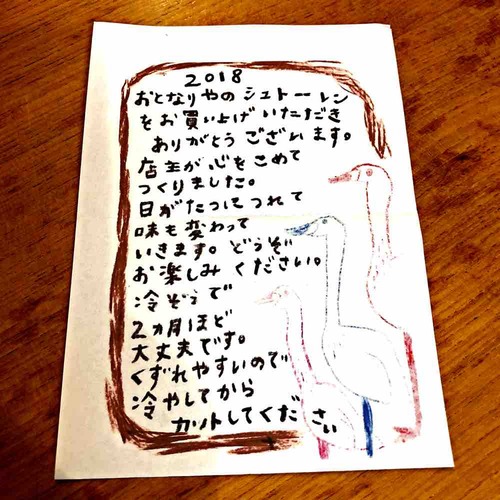 2018
おとなりやの シュトーレン
をお買い上げ いただき
ありがとう ございます。
店主が心をこめて
つくりました。
日がたつにつれて
味も変わって
いきます。どうぞ
お楽しみ ください。
冷ぞうで
2ヵ月ほど
大丈夫です。
くずれやすいので
冷やしてから
カットしてください